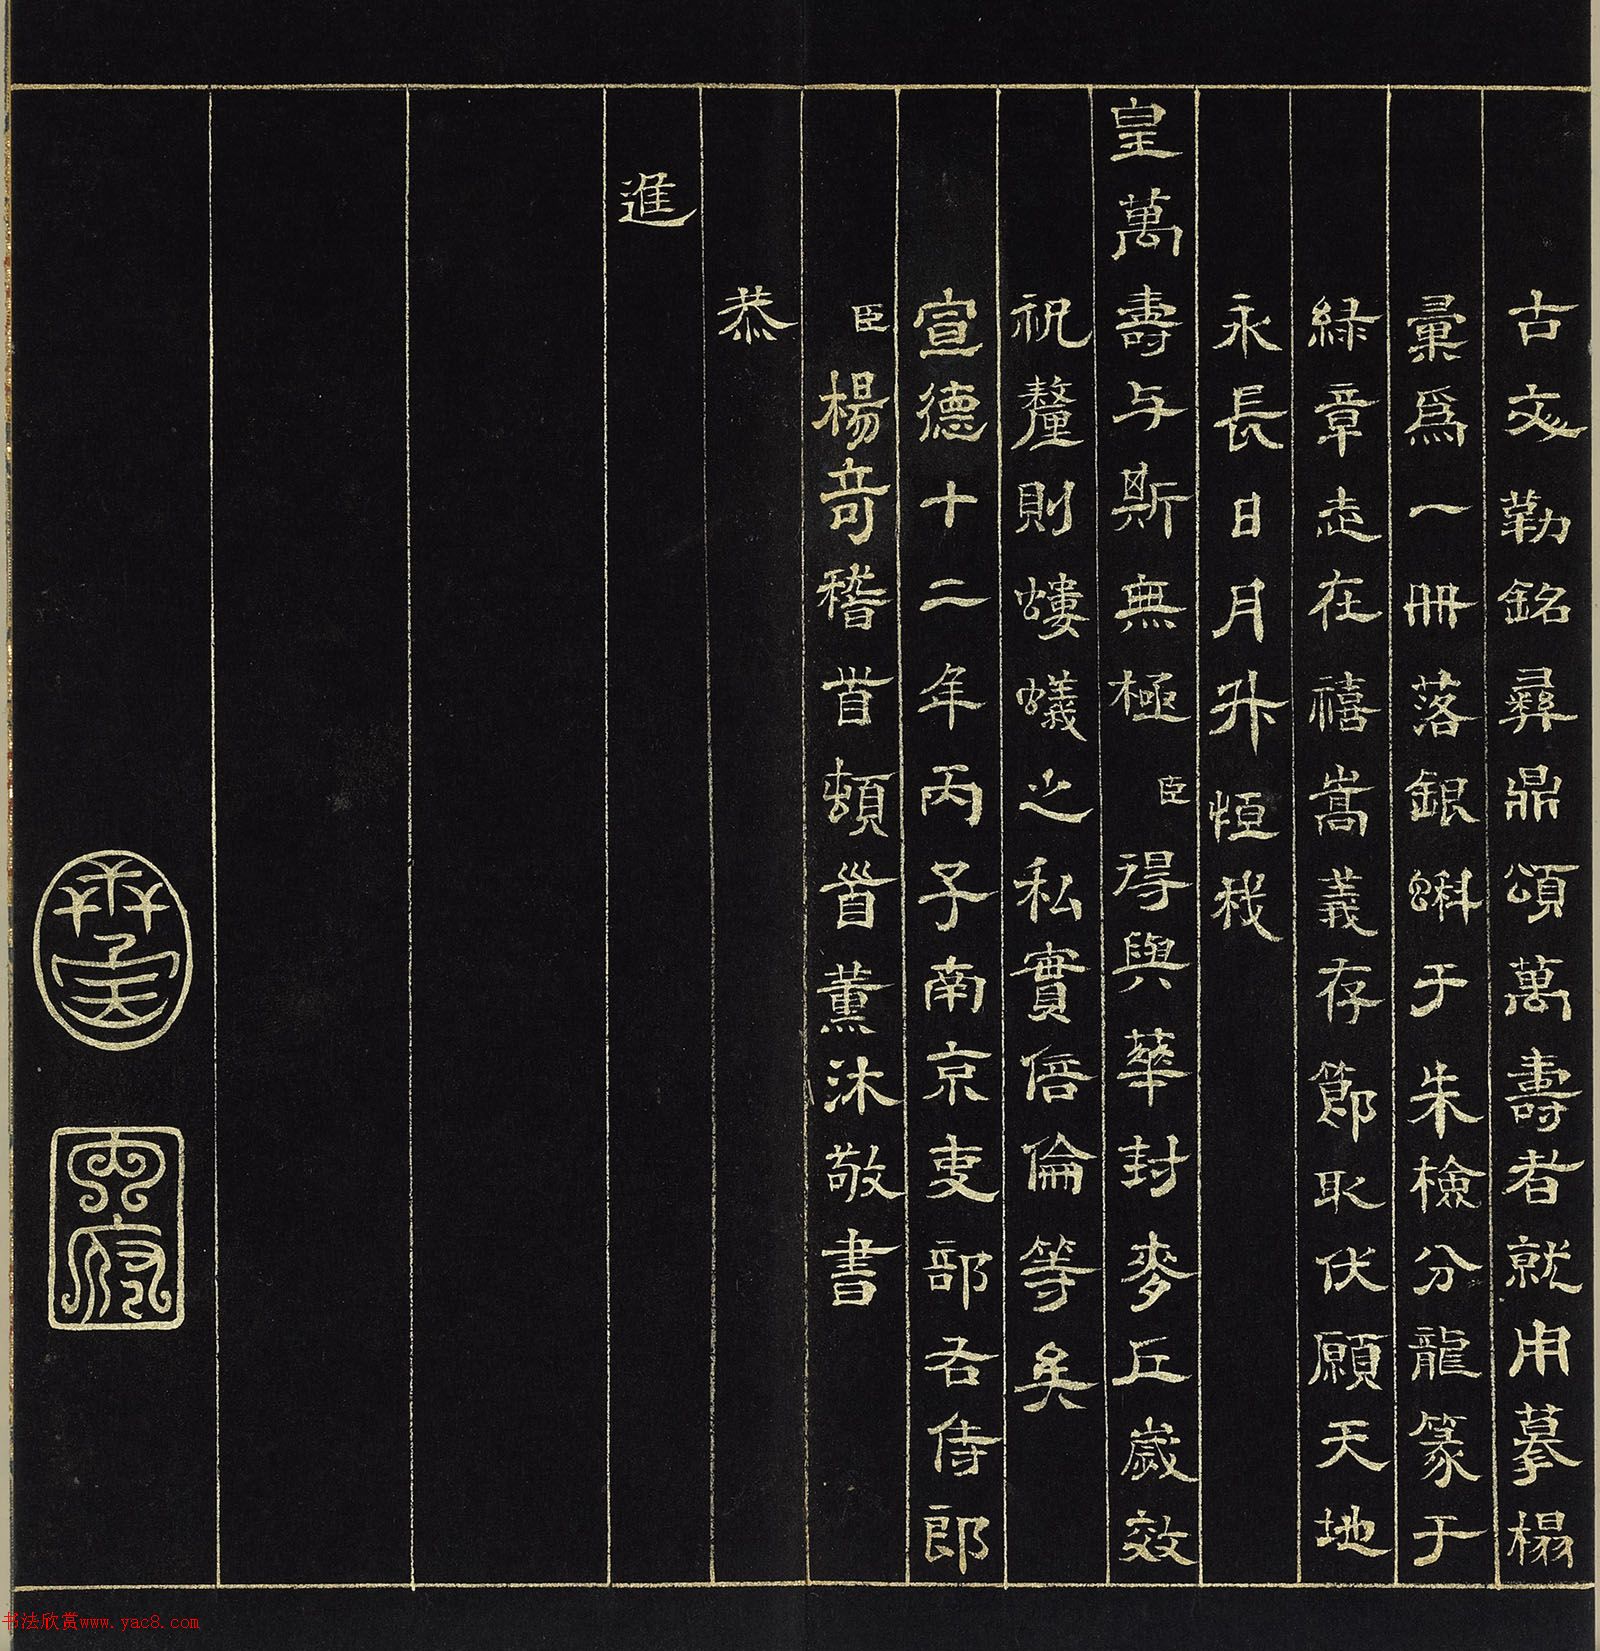 古文勒銘彝鼎頌萬壽者就用摹榻
彙爲一冊落銀蝌于朱檢分龍篆于
綠章志在禧嵩義存節取伏願天地
永長日月升恒我
皇萬壽与斯無極臣得與華封麥丘歲效
祝釐則螻蟻之私實倍倫等矣
宣德十二年丙子南京吏部右侍郎
臣楊奇稽首頓首薰沐敬書
恭
進
书法欣赏www.yac8.com